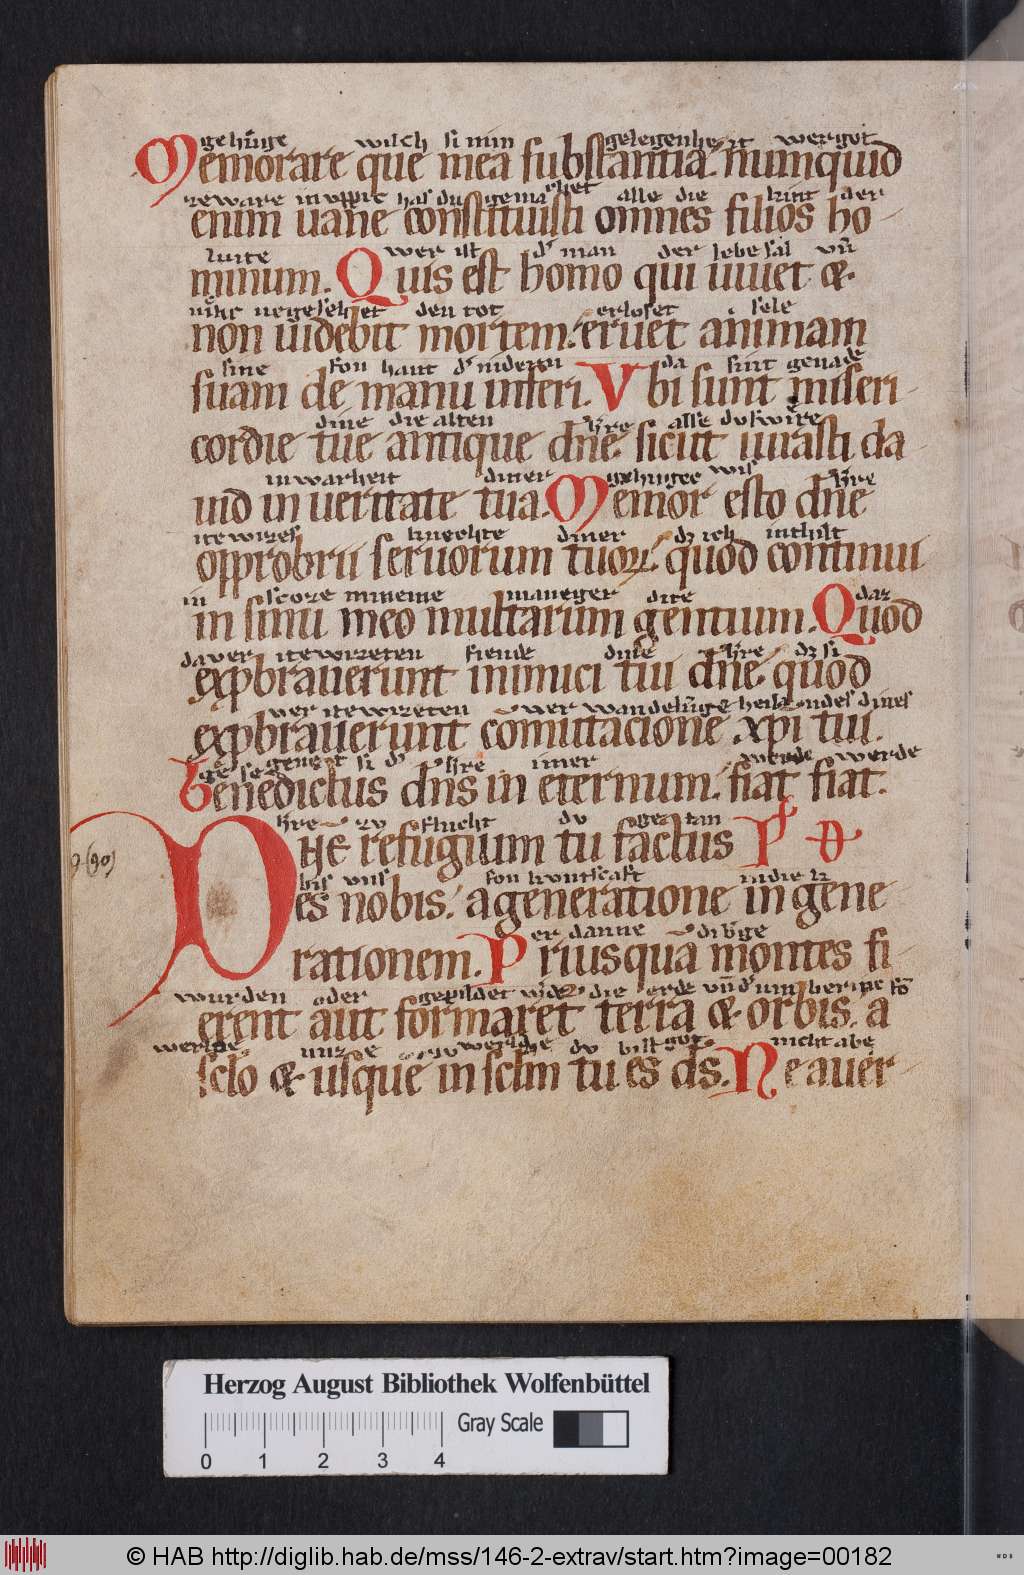 gehuge wilch si min gelegenheit wergot
Memorare que mea substantia. numquid
zeware inuppic has du gemachet alle die kint der
enim uane constituisti omnes filios ho-
luite wer ist d' man der lebe sal vn̄
minum. Quis est homo qui uiuet &.
niht negesehet den tot erloset sele
non uidebit mortem. eruet animam
sine fon hant d' nideren da sint genade
suam de manu inferi. Vbi sunt miseri-
dine die alten h're alse du swire
cordie tue antique dn̄e. sicut iurasti da-
inwarheit diner gehuger wis h're
uid in ueritate tua. Memor esto dn̄e
itewizes knechte diner dz ich inthilt
opprobrii seruorum tuoꝝ. quod continui
in scoze mineme maneger dite daz
in sinu meo multarum gentium. Quod
da ver itewizeten fiende dine h're dz si
exprobrauerunt inimici tui dn̄e quod
ver itewizeten wer wandelūge heilandes dines
exprobrauerunt comutacione xp̄i tui.
gesegenet si d' h're imer werde werde
Benedictus dn̄s in eternum. fiat fiat.
h're zu flucht du getan
DNE refugium tu factus Ps D
9 (90)
bis uns fon kuntscaft indie
es nobis. a generatione in gene-
er danne di b'ge
rationem. Priusqua montes fi-
wurden oder gepildet die erde vn̄ d' umbering fō
erent aut formaret terra & orbis. a
werlde werlde du bist got nicht abe
sc̄lo & usque in sc̄lm tu es ds̄. Ne auer-
Herzog August Bibliothek Wolfenbüttel
Gray Scale
0 1 2 3 4
© HAB http://diglib.hab.de/mss/146-2-extrav/start.htm?image=00182
WDB